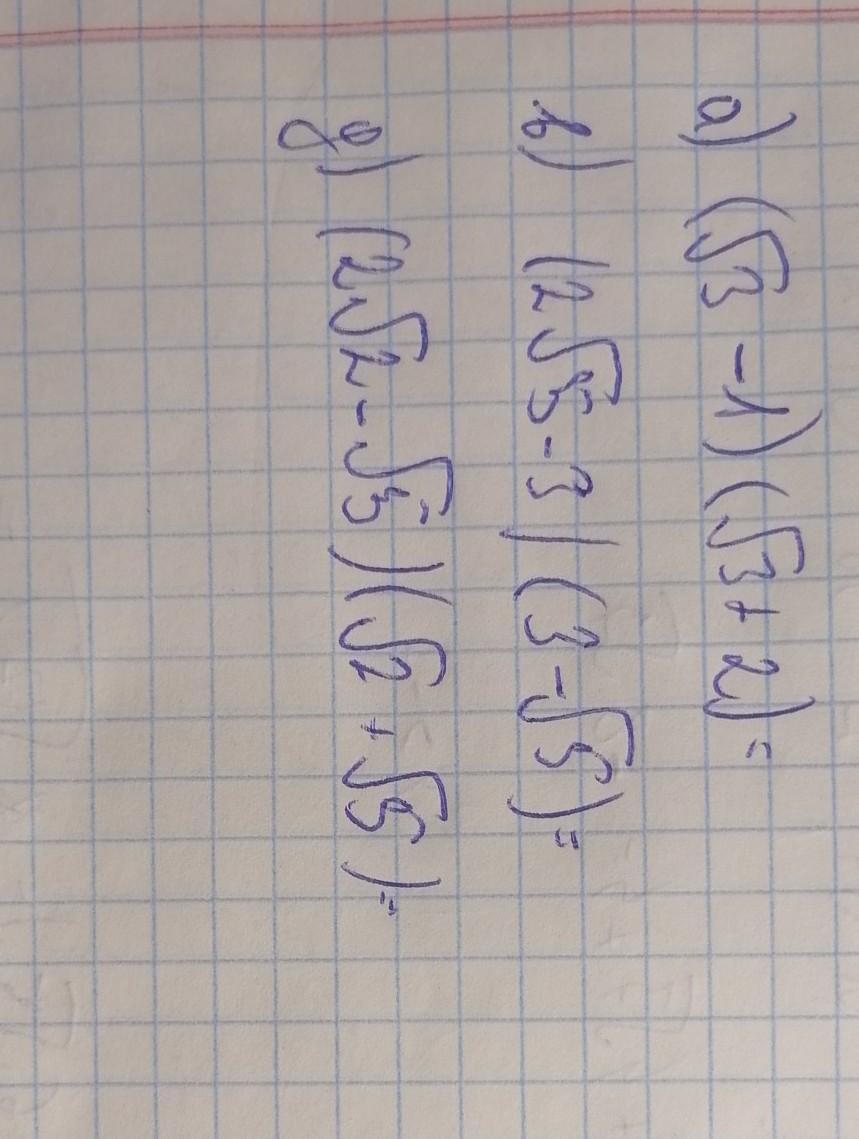 а) (√3 - 1)(√3 + 2) =
в) (2√5 - 3)(3 - √5) =
д) (2√2 - √5)(√2 + √5) =